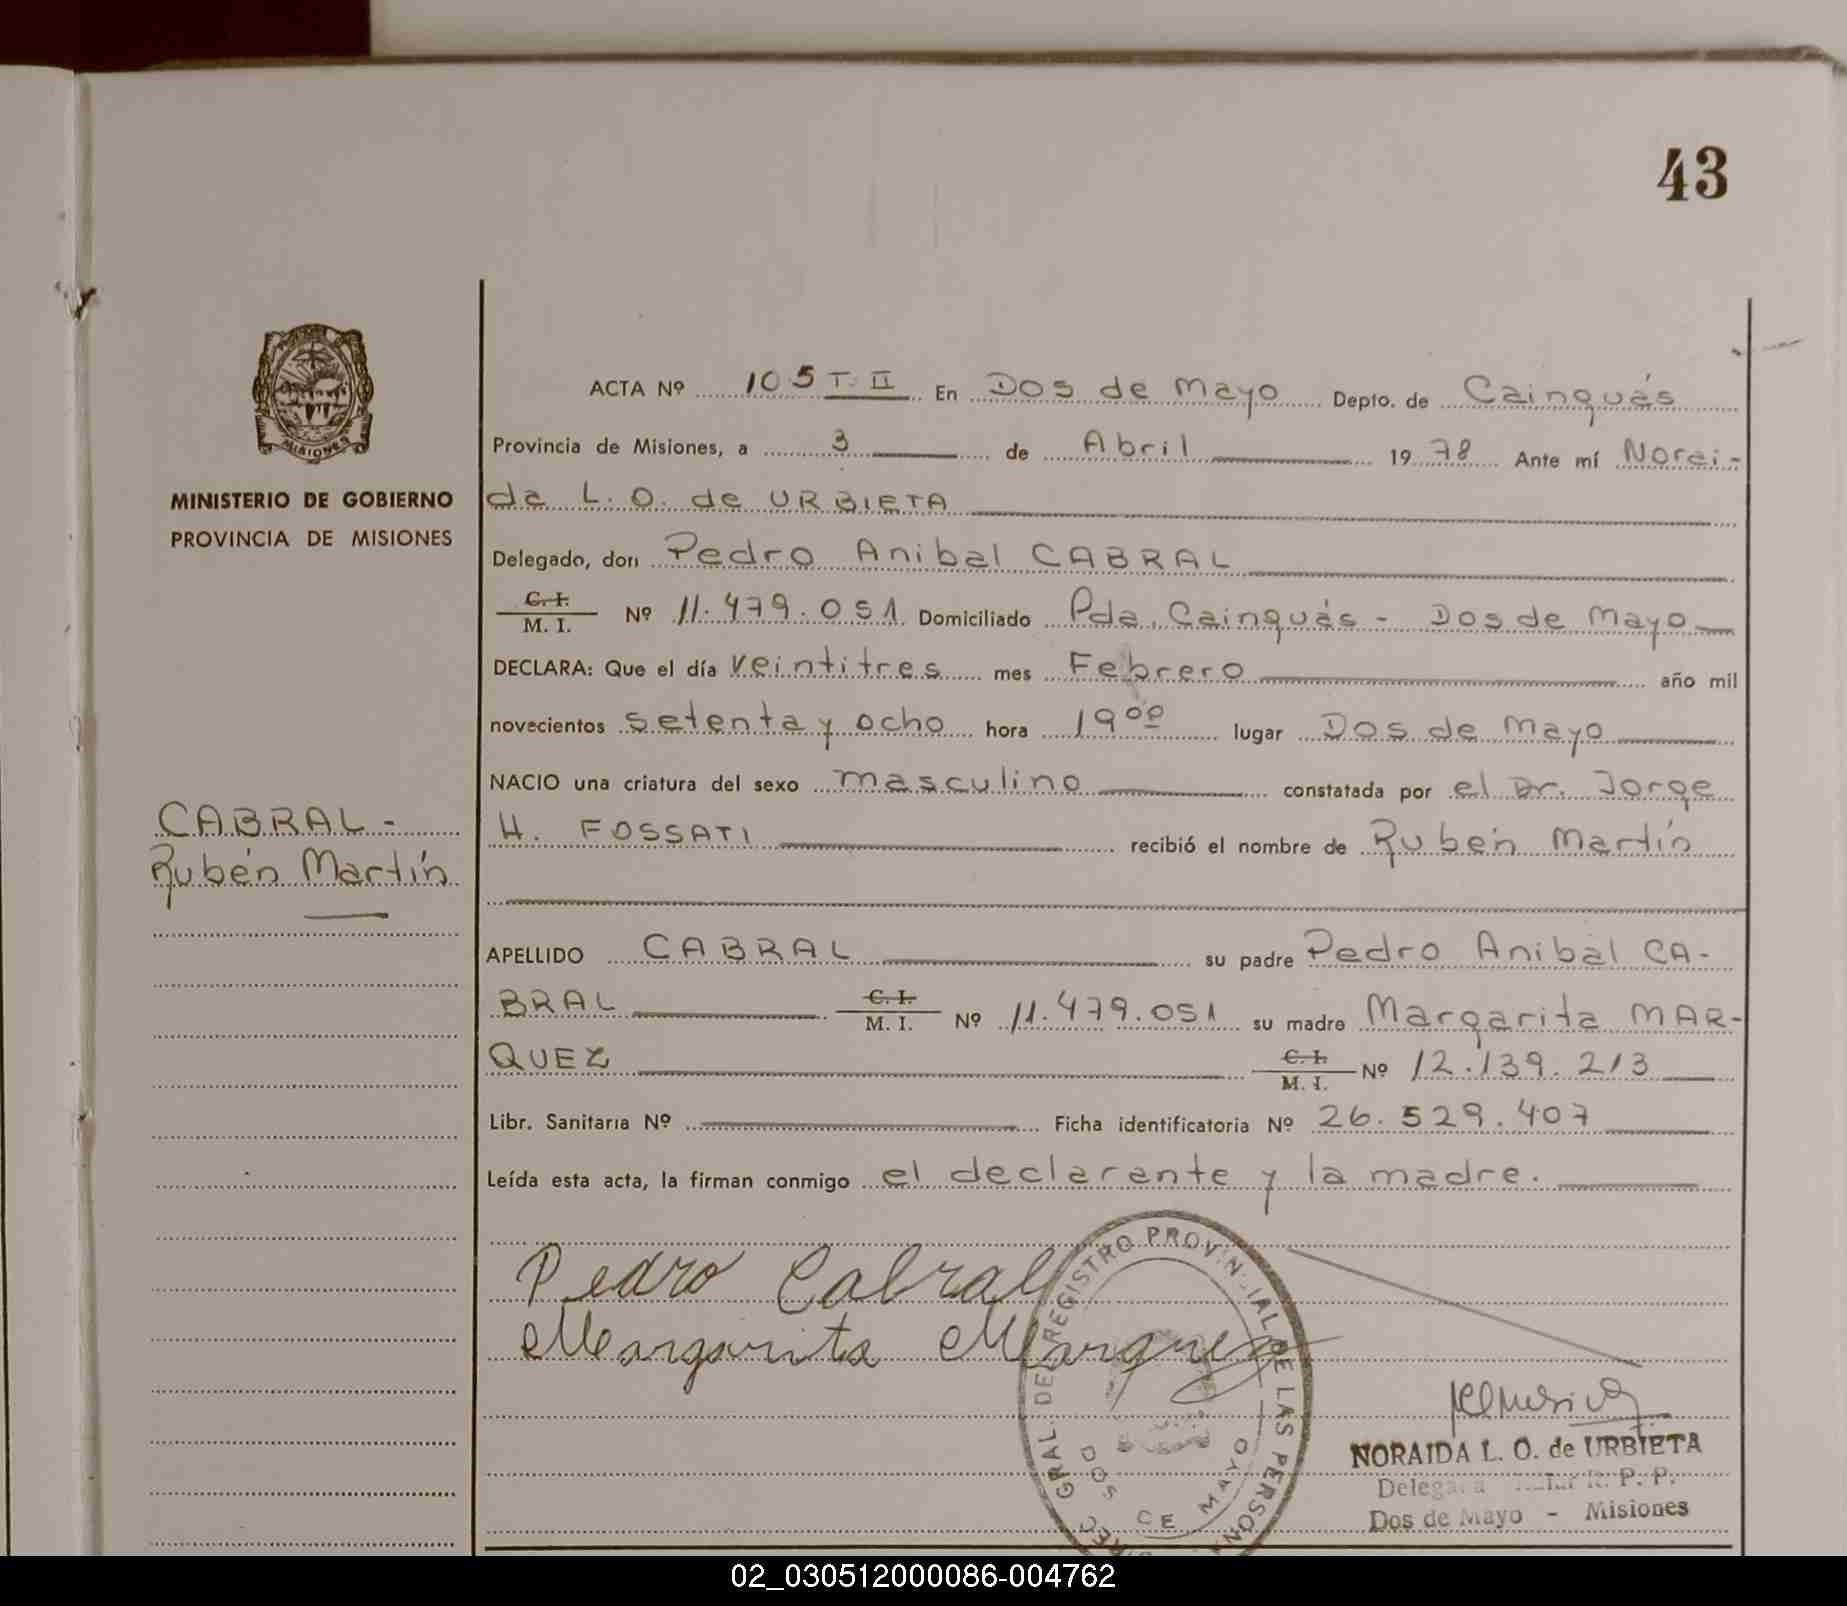 43
MISIONES
MINISTERIO DE GOBIERNO
PROVINCIA DE MISIONES
CABRAL -
Rubén Martín
ACTA Nº 105 T. II En Dos de Mayo Depto. de Cainguás
Provincia de Misiones, a 3 de Abril 19 78 Ante mí Norai-
da L. O. de URBIETA
Delegado, don Pedro Anibal CABRAL
C. I.
M. I. Nº 11.479.051 Domiciliado Pda. Cainguás - Dos de Mayo
DECLARA: Que el día veintitres mes Febrero año mil
novecientos setenta y ocho hora 19 00 lugar Dos de Mayo
NACIO una criatura del sexo masculino constatada por el Dr. Jorge
H. FOSSATI recibió el nombre de Rubén Martín
APELLIDO CABRAL su padre Pedro Anibal CA-
BRAL C. I. M. I. Nº 11.479.051 su madre Margarita MAR-
QUEZ C. I. M. I. Nº 12.139.213
Libr. Sanitaria Nº Ficha identificatoria Nº 26.529.407
Leída esta acta, la firman conmigo el declarante y la madre.
Pedro Cabral
Margarita Marquez
GRAL. DEL REGISTRO PROVINCIAL DE LAS PERSONAS
DOS DE MAYO
NORAIDA L. O. de URBIETA
R. P. P.
Dos de Mayo - Misiones
02_030512000086-004762